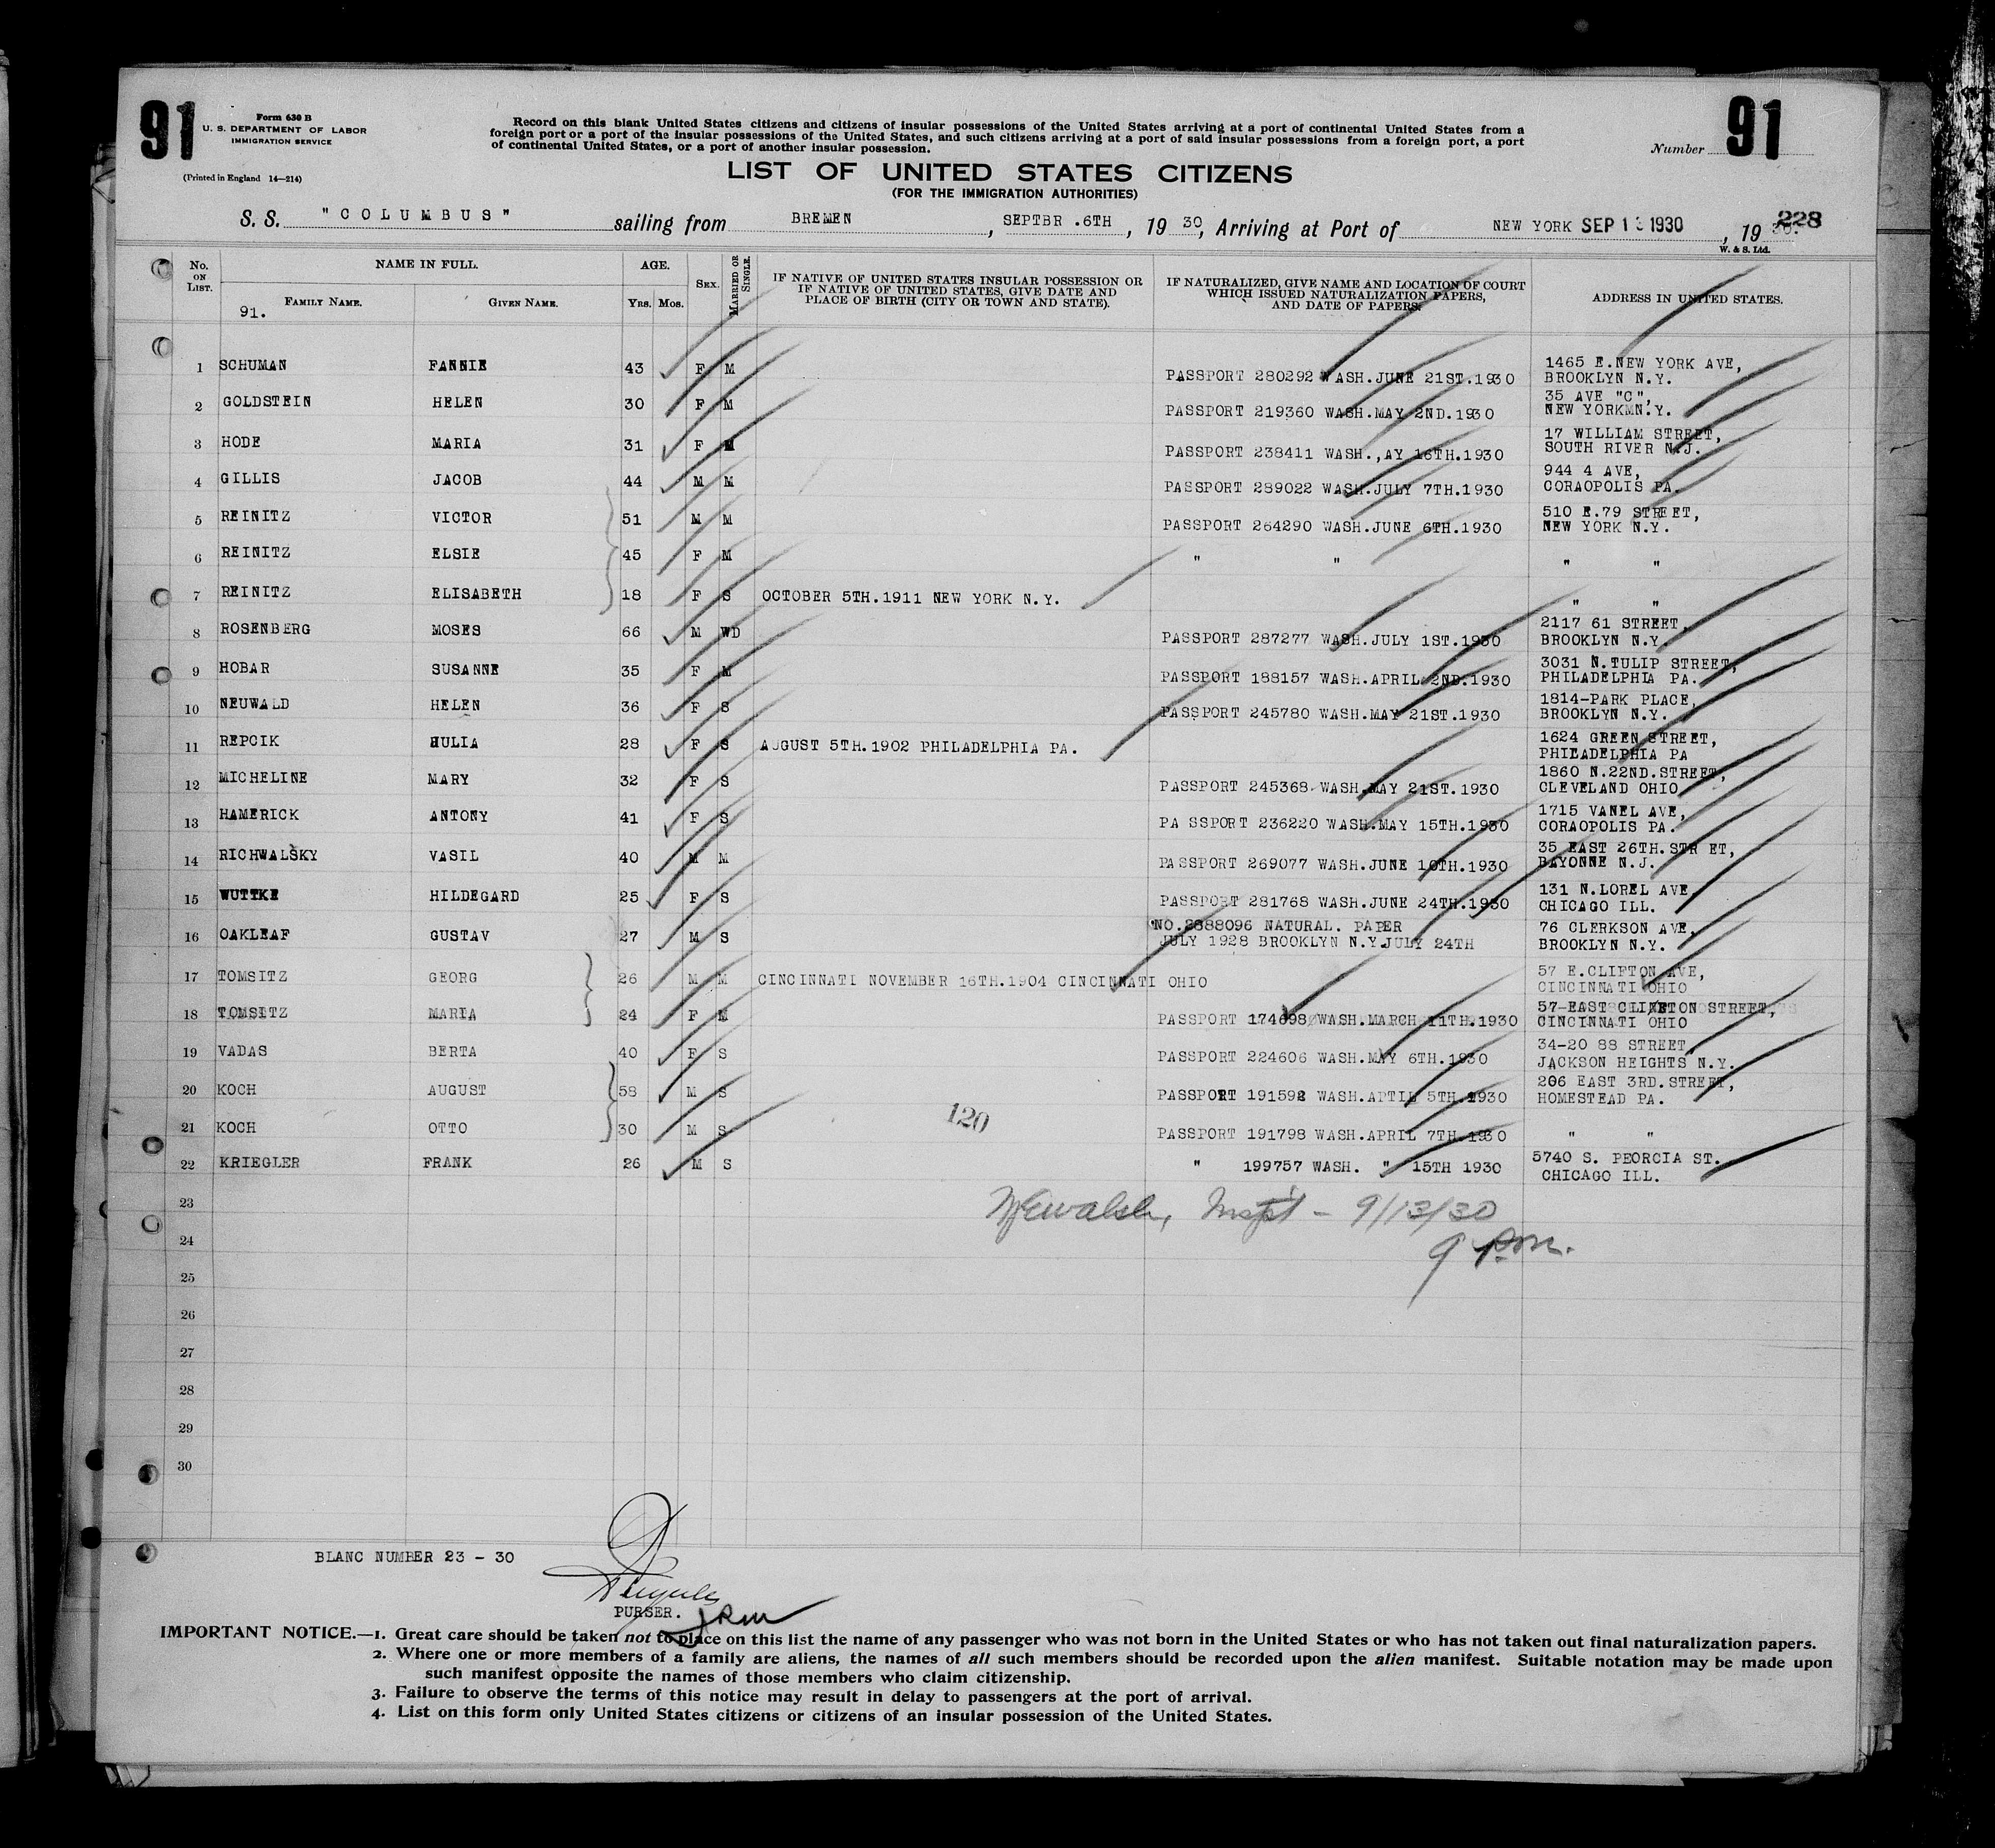 91
Form 630 B
U. S. DEPARTMENT OF LABOR
IMMIGRATION SERVICE
(Printed in England 14—214)
Record on this blank United States citizens and citizens of insular possessions of the United States arriving at a port of continental United States from a
foreign port or a port of the insular possessions of the United States, and such citizens arriving at a port of said insular possessions from a foreign port, a port
of continental United States, or a port of another insular possession.
Number 91
LIST OF UNITED STATES CITIZENS
(FOR THE IMMIGRATION AUTHORITIES)
S. S. "COLUMBUS" sailing from BREMEN, SEPTBR .6TH, 19 30, Arriving at Port of NEW YORK SEP 13 1930, 19 30. 228
W. & S. Ltd.
No. ON LIST. NAME IN FULL. AGE. SEX. MARRIED OR SINGLE. IF NATIVE OF UNITED STATES INSULAR POSSESSION OR IF NATIVE OF UNITED STATES, GIVE DATE AND PLACE OF BIRTH (CITY OR TOWN AND STATE). IF NATURALIZED, GIVE NAME AND LOCATION OF COURT WHICH ISSUED NATURALIZATION PAPERS, AND DATE OF PAPERS. ADDRESS IN UNITED STATES.
FAMILY NAME. GIVEN NAME. YRS. MOS.
91.
1 SCHUMAN FANNIE 43 F M PASSPORT 280292 WASH.JUNE 21ST.1930 1465 E.NEW YORK AVE,
BROOKLYN N.Y.
2 GOLDSTEIN HELEN 30 F M PASSPORT 219360 WASH.MAY 2ND.1930 35 AVE "C",
NEW YORKMN.Y.
3 HODE MARIA 31 F M PASSPORT 238411 WASH.,AY 16TH.1930 17 WILLIAM STREET,
SOUTH RIVER N.J.
4 GILLIS JACOB 44 M M PASSPORT 289022 WASH.JULY 7TH.1930 944 4 AVE,
CORAOPOLIS PA.
5 REINITZ VICTOR 51 M M PASSPORT 264290 WASH.JUNE 6TH.1930 510 E.79 STREET,
NEW YORK N.Y.
6 REINITZ ELSIE 45 F M " " " "
7 REINITZ ELISABETH 18 F S OCTOBER 5TH.1911 NEW YORK N.Y. " "
8 ROSENBERG MOSES 66 M WD PASSPORT 287277 WASH.JULY 1ST.1930 2117 61 STREET,
BROOKLYN N.Y.
9 HOBAR SUSANNE 35 F M PASSPORT 188157 WASH.APRIL 2ND.1930 3031 N.TULIP STREET,
PHILADELPHIA PA.
10 NEUWALD HELEN 36 F S PASSPORT 245780 WASH.MAY 21ST.1930 1814-PARK PLACE,
BROOKLYN N.Y.
11 REPCIK HULIA 28 F S AUGUST 5TH.1902 PHILADELPHIA PA. 1624 GREEN STREET,
PHILADELPHIA PA
12 MICHELINE MARY 32 F S PASSPORT 245368 WASH.MAY 21ST.1930 1860 N.22ND.STREET,
CLEVELAND OHIO
13 HAMERICK ANTONY 41 F S PA SSPORT 236220 WASH.MAY 15TH.1930 1715 VANEL AVE,
CORAOPOLIS PA.
14 RICHWALSKY VASIL 40 M M PASSPORT 269077 WASH.JUNE 10TH.1930 35 EAST 26TH.STR ET,
BAYONNE N.J.
15 WUTTKE HILDEGARD 25 F S PASSPORT 281768 WASH.JUNE 24TH.1930 131 N.LOREL AVE
CHICAGO ILL.
16 OAKLEAF GUSTAV 27 M S NO.2888096 NATURAL. PAPER
JULY 1928 BROOKLYN N.Y.JULY 24TH 76 CLERKSON AVE,
BROOKLYN N.Y.
17 TOMSITZ GEORG 26 M M CINCINNATI NOVEMBER 16TH.1904 CINCINNATI OHIO 57 E.CLIFTON AVE,
CINCINNATI OHIO
18 TOMSITZ MARIA 24 F M PASSPORT 174698 WASH.MARCH 11TH.1930 57-EAST CLIFTON STREET,
CINCINNATI OHIO
19 VADAS BERTA 40 F S PASSPORT 224606 WASH.MAY 6TH.1930 34-20 88 STREET
JACKSON HEIGHTS N.Y.
20 KOCH AUGUST 58 M S PASSPORT 191592 WASH.APTIL 5TH.1930 206 EAST 3RD.STREET,
HOMESTEAD PA.
120
21 KOCH OTTO 30 M S PASSPORT 191798 WASH.APRIL 7TH.1930 " "
22 KRIEGLER FRANK 26 M S " 199757 WASH. " 15TH 1930 5740 S. PEORCIA ST.
CHICAGO ILL.
23
Walsh, Insp't - 9/13/30
24
9 P.M.
25
26
27
28
29
30
BLANC NUMBER 23 - 30
PURSER.
JRM
IMPORTANT NOTICE.—1. Great care should be taken not to place on this list the name of any passenger who was not born in the United States or who has not taken out final naturalization papers.
2. Where one or more members of a family are aliens, the names of all such members should be recorded upon the alien manifest. Suitable notation may be made upon
such manifest opposite the names of those members who claim citizenship.
3. Failure to observe the terms of this notice may result in delay to passengers at the port of arrival.
4. List on this form only United States citizens or citizens of an insular possession of the United States.